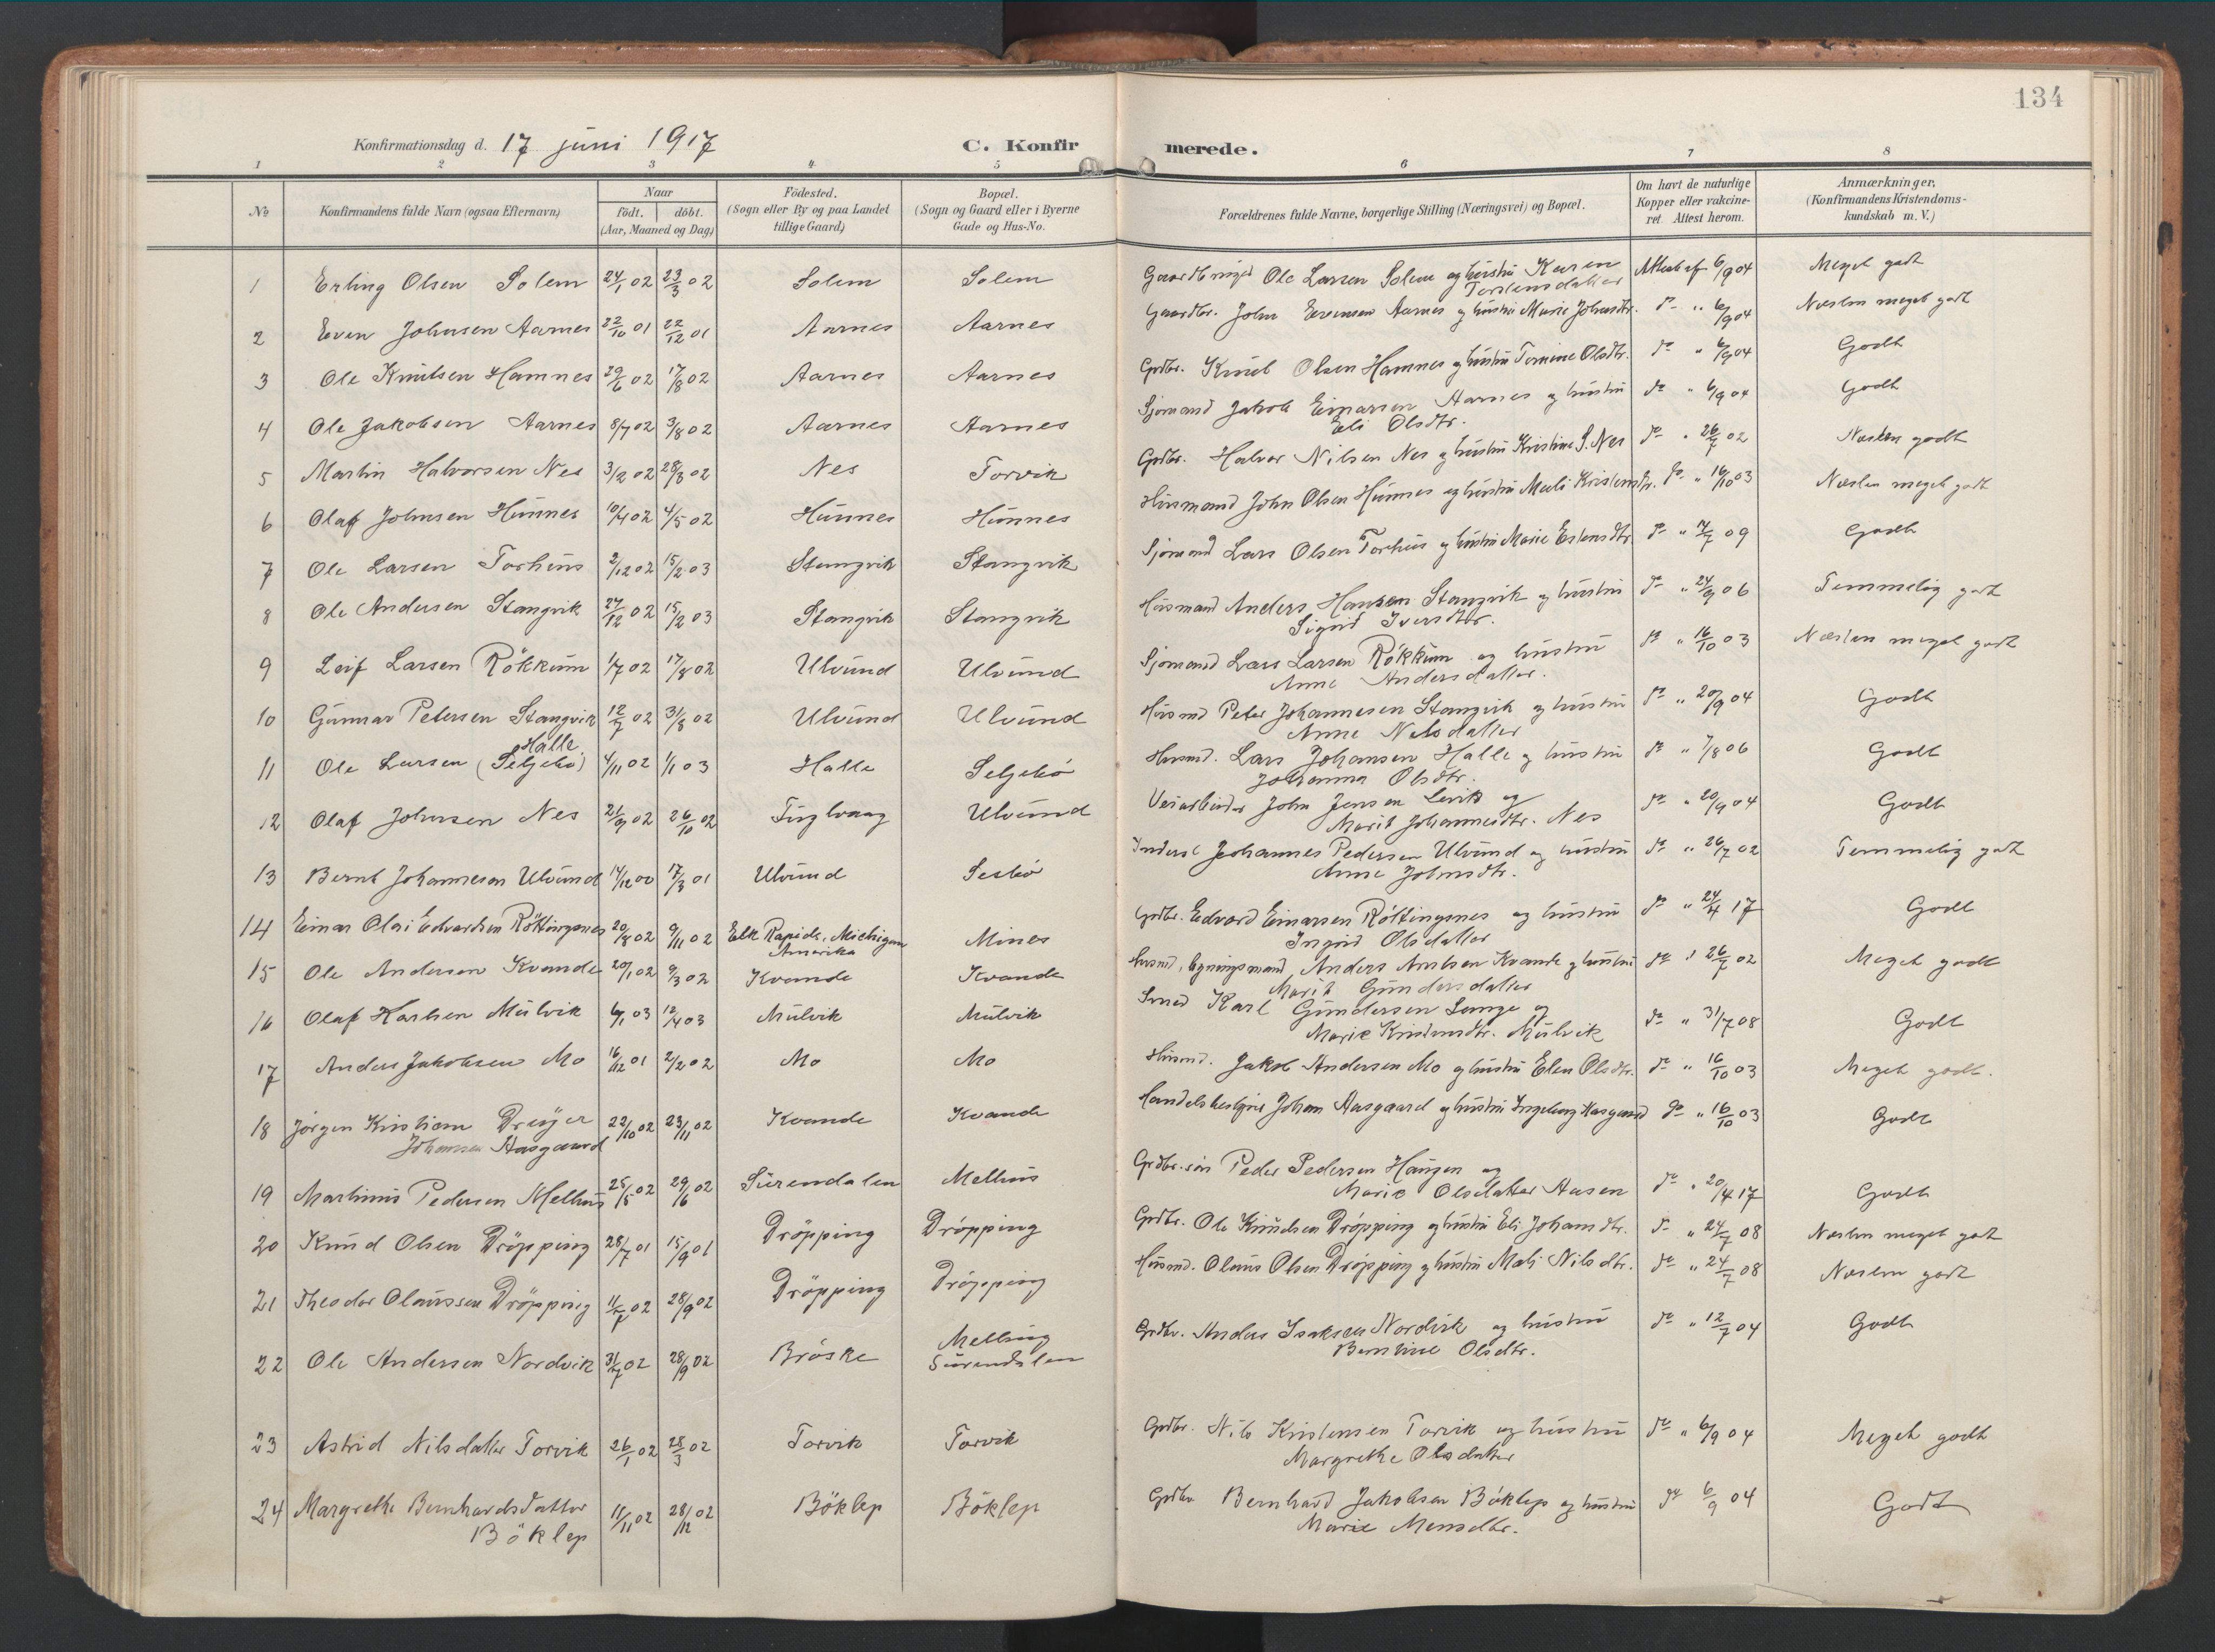 134
Konfirmationsdag d. 17 juni 1917 C. Konfirmerede.
1 2 3 4 5 6 7 8
No Konfirmandens fulde Navn (ogsaa Efternavn) Naar födt. döbt. (Aar, Maaned og Dag) Födested. (Sogn eller By og paa Landet tillige Gaard) Bopæl. (Sogn og Gaard eller i Byerne Gade og Hus-No. Forældrenes fulde Navne, borgerlige Stilling (Næringsvei) og Bopæl. Om havt de naturlige Kopper eller vakcineret. Attest herom. Anmærkninger, (Konfirmandens Kristendomskundskab m. V.)
1 Erling Olsen Solem 24/1 02 23/3 02 Solem Solem Ole Larsen Solem og hustru Karen Torstensdatter Attest af 6/9 04 Meget godt
2 Even Johnsen Aarnes 22/10 01 22/12 01 Aarnes Aarnes Gaardbr. John Evensen Aarnes og hustru Marie Johnsdtr. do " 6/9 04 Næsten meget godt
3 Ole Knutsen Hamnes 29/6 02 17/8 02 Aarnes Aarnes Grdbr. Knut Olsen Hamnes og hustru Olsdtr. do " 6/9 04 Godt
4 Ole Jakobsen Aarnes 8/7 02 3/8 02 Aarnes Aarnes Sjömand Jakob Einarsen Aarnes og hustru Eli Olsdtr. do " 6/9 04 Godt
5 Martin Halvorsen Nes 3/2 02 28/3 02 Nes Torvik Grdbr. Halvor Nilsen Nes og hustru Kristine S. Nes do " 26/7 02 Næsten godt
6 Olaf Johnsen Hünnes 10/4 02 4/5 02 Hünnes Hünnes Hüsmand John Olsen Hünnes og hustru Mali Kristensdtr. do " 16/10 03 Næsten meget godt
7 Ole Larsen Torhüs 2/12 02 15/2 03 Stangvik Stangvik Sjömand Lars Olsen Torhüs og hustru Marie Estensdtr do " 09 Godt
8 Ole Andersen Stangvik 27/12 02 15/2 03 Stangvik Stangvik Hüsmand Anders Hansen Stangvik og hustru Sigrid Iversdtr. do " 24/9 06 Temmelig godt
9 Leif Larsen Rökkum 1/7 02 17/8 02 Ulvünd Ulvünd Sjömand Lars Larsen Rökkum og hustru Anne Andersdatter. do " 16/10 03 Næsten meget godt
10 Günnar Petersen Stangvik 12/7 02 31/8 02 Ulvünd Ulvünd Hüsmd Peter Johannesen Stangvik og hustru Anne Nilsdatter do " 20/9 04 Godt
11 Ole Larsen Halle (Seljebö) 4/11 02 1/1 03 Halle Seljebö Husmd. Lars Johansen Halle og hustru Johanna Olsdtr. do " 7/8 06 Godt
12 Olaf Johnsen Nes 21/9 02 26/10 02 Tinglvaag Ulvünd Veiarbeider John Jensen og Marit Johannesdtr. Nes do " 20/9 04 Godt
13 Bernt Johannesen Ulvünd 14/12 00 17/3 01 Ulvünd Inderst Johannes Pedersen Ulvünd og hustru Anne Johnsdtr. do " 26/7 02 Temmelig godt
14 Einar Olai Edvardsen Röttingsnes 20/8 02 9/11 02 Elk Rapids, Michigan Amerika Mines Grdbr. Edvard Einarsen Röttingsnes og hustru Ingrid Olsdatter do " 24/4 17 Godt
15 Ole Andersen Kvande 20/1 02 9/3 02 Kvande Kvande Husmd, bygningsmand, Anders Kvande og hustru Marit Gündersdatter do " 26/7 02 Meget godt
16 Olaf Karlsen Mülvik 6/1 03 12/4 03 Mülvik Mülvik Smed Karl Gündersen og Marie Kristensdtr. Mülvik do " 31/7 08 Godt
17 Anders Jakobsen Mo 16/12 01 2/2 02 Mo Mo Hüsmd. Jakob Andersen Mo og hustru Elen Olsdtr. do " 16/10 03 Meget godt.
18 Jörgen Kristian Dreyer Johansen Aasgaard 22/10 02 23/11 02 Kvande Kvande Handelsbestyrer Johan Aasgaard og hustru Ingeborg Aasgaard do " 16/10 03 Godt
19 Martinus Pedersen Melhus 25/5 02 29/6 02 Sürendalen Melhus Grdbr.sön Peder Pedersen Haugen og Marie Olsdatter Aasen do " 20/4 17 Godt
20 Knüd Olsen Dröpping 28/7 01 15/9 01 Dröpping Dröpping Grdbr. Ole Knüdsen Dröpping og hustru Eli Johansdtr. do " 24/7 08 Næsten meget godt
21 Theodor Olaüssen Dröpping 11/7 02 28/9 02 Dröpping Dröpping Hüsmd. Olaüs Olsen Dröpping og hustru Mali Nilsdtr. do " 24/7 08 Næsten godt
22 Ole Andersen Nordvik 31/7 02 28/9 02 Bröske Melhus Sürendalen Grdbr. Anders Isaksen Nordvik og hustru Berntine Olsdtr. do " 12/7 04 Godt
23 Astrid Nilsdatter Torvik 26/1 02 28/3 02 Torvik Torvik Grdbr. Nils Kristensen Torvik og hustru Margrethe Olsdatter do " 6/9 04 Meget godt
24 Margrethe Bernhardsdatter Böklep 11/11 02 28/12 02 Böklep Böklep Grdbr. Bernhard Jakobsen Böklep og hustru Marie Monsdtr. do 6/9 04 Godt